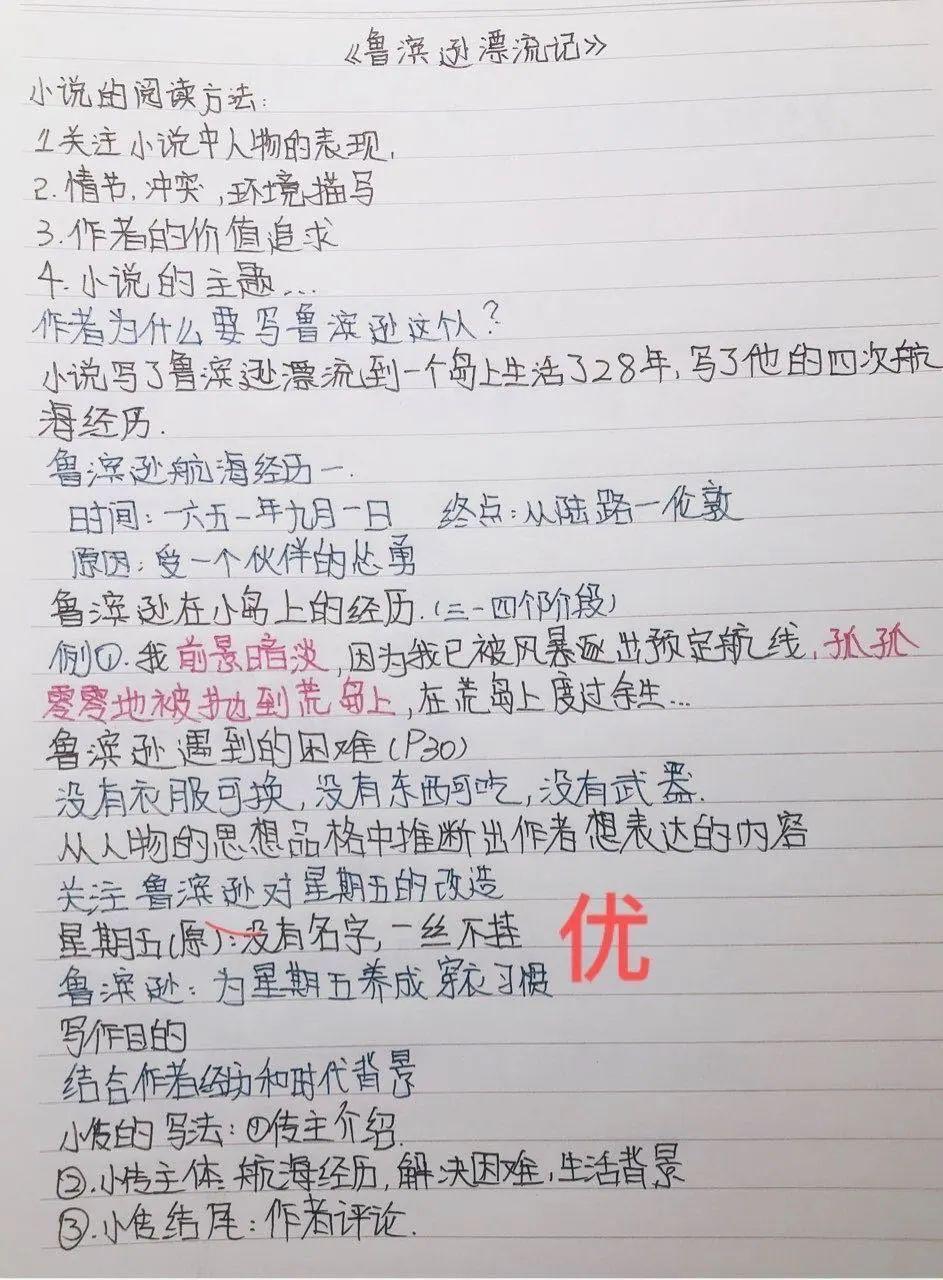 《鲁滨逊漂流记》
小说的阅读方法:
1.关注小说中人物的表现.
2.情节,冲突,环境描写
3.作者的价值追求
4.小说的主题...
作者为什么要写鲁滨逊这个人?
小说写了鲁滨逊漂流到一个岛上生活了28年,写了他的四次航
海经历.
鲁滨逊航海经历一.
时间:一六五一年九月一日 终点:从陆路一伦敦
原因:受一个伙伴的怂勇
鲁滨逊在小岛上的经历.(三-四个阶段)
例①.我前景暗淡,因为我已被风暴逐出预定航线,孤孤
零零地被抛到荒岛上,在荒岛上度过余生...
鲁滨逊遇到的困难(P30)
没有衣服可换,没有东西可吃,没有武器.
从人物的思想品格中推断出作者想表达的内容
关注鲁滨逊对星期五的改造
星期五(原):没有名字,一丝不挂
优
鲁滨逊:为星期五养成穿衣习惯
写作目的
结合作者经历和时代背景
小传的写法:①传主介绍.
②.小传主体.航海经历,解决困难,生活背景
③.小传结尾:作者评论.